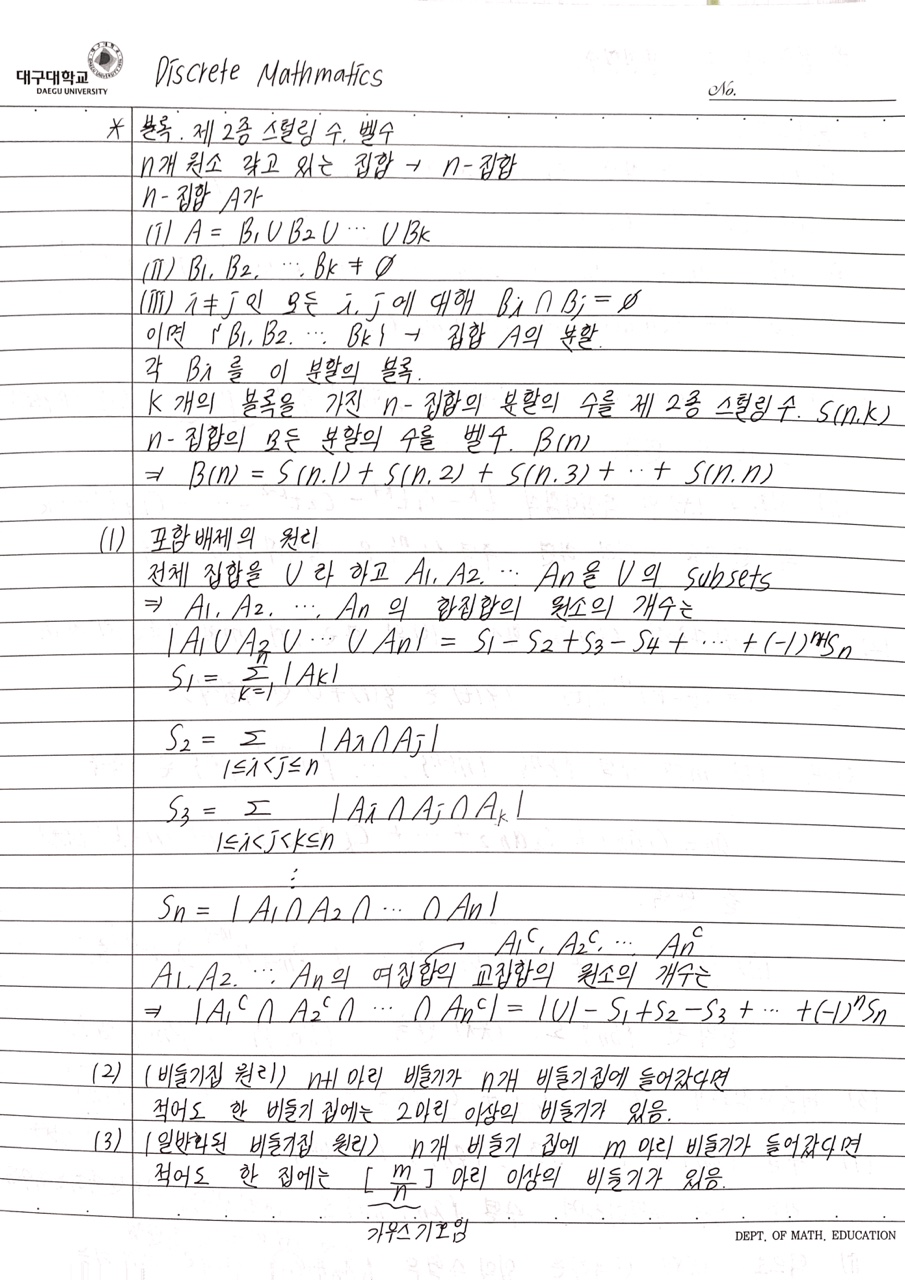 대구대학교
DAEGU UNIVERSITY
Discrete Mathmatics
No.
* 블록. 제 2종 스털링 수. 벨수
n개 원소 갖고 있는 집합 → n-집합
n-집합 A가
(i) A = B₁∪B₂∪ ⋯ ∪Bk
(ii) B₁. B₂. ⋯. Bk ≠ ∅
(iii) i≠j 인 모든 i, j에 대해 Bi ∩ Bj = ∅
이면 {B₁, B₂. ⋯. Bk} → 집합 A의 분할.
각 Bi를 이 분할의 블록.
k 개의 블록을 가진 n-집합의 분할의 수를 제 2종 스털링수. S(n.k)
n-집합의 모든 분할의 수를 벨수. B(n)
⇒ B(n) = S(n.1) + S(n.2) + S(n.3) + ‥ + S(n.n)
(1) 포함배제의 원리
전체 집합을 U 라 하고 A₁, A₂. ⋯ An을 U의 subsets
⇒ A₁. A₂. ⋯. An 의 합집합의 원소의 개수는
|A₁∪A₂∪ ⋯ ∪An| = S₁-S₂+S₃-S₄+ ⋯ +(-1)ⁿ⁺¹Sn
S₁ = Σ_{k=1}^{n} |Ak|
S₂ = Σ |Ai∩Aj|
1≤i<j≤n
S₃ = Σ |Ai∩Aj∩Ak|
1≤i<j<k≤n
⋮
Sn = |A₁∩A₂∩ ⋯ ∩An|
A₁ᶜ, A₂ᶜ, ⋯ Anᶜ
A₁. A₂. ⋯. An의 여집합의 교집합의 원소의 개수는
⇒ |A₁ᶜ∩A₂ᶜ∩ ⋯ ∩Anᶜ| = |U|-S₁+S₂-S₃+ ⋯ +(-1)ⁿSn
(2) (비둘기집 원리) n+1 마리 비둘기가 n개 비둘기집에 들어갔다면
적어도 한 비둘기 집에는 2마리 이상의 비둘기가 있음.
(3) (일반화된 비둘기집 원리) n개 비둘기 집에 m 마리 비둘기가 들어갔다면
적어도 한 집에는 [m/n] 마리 이상의 비둘기가 있음.
가우스기호임
DEPT. OF MATH. EDUCATION